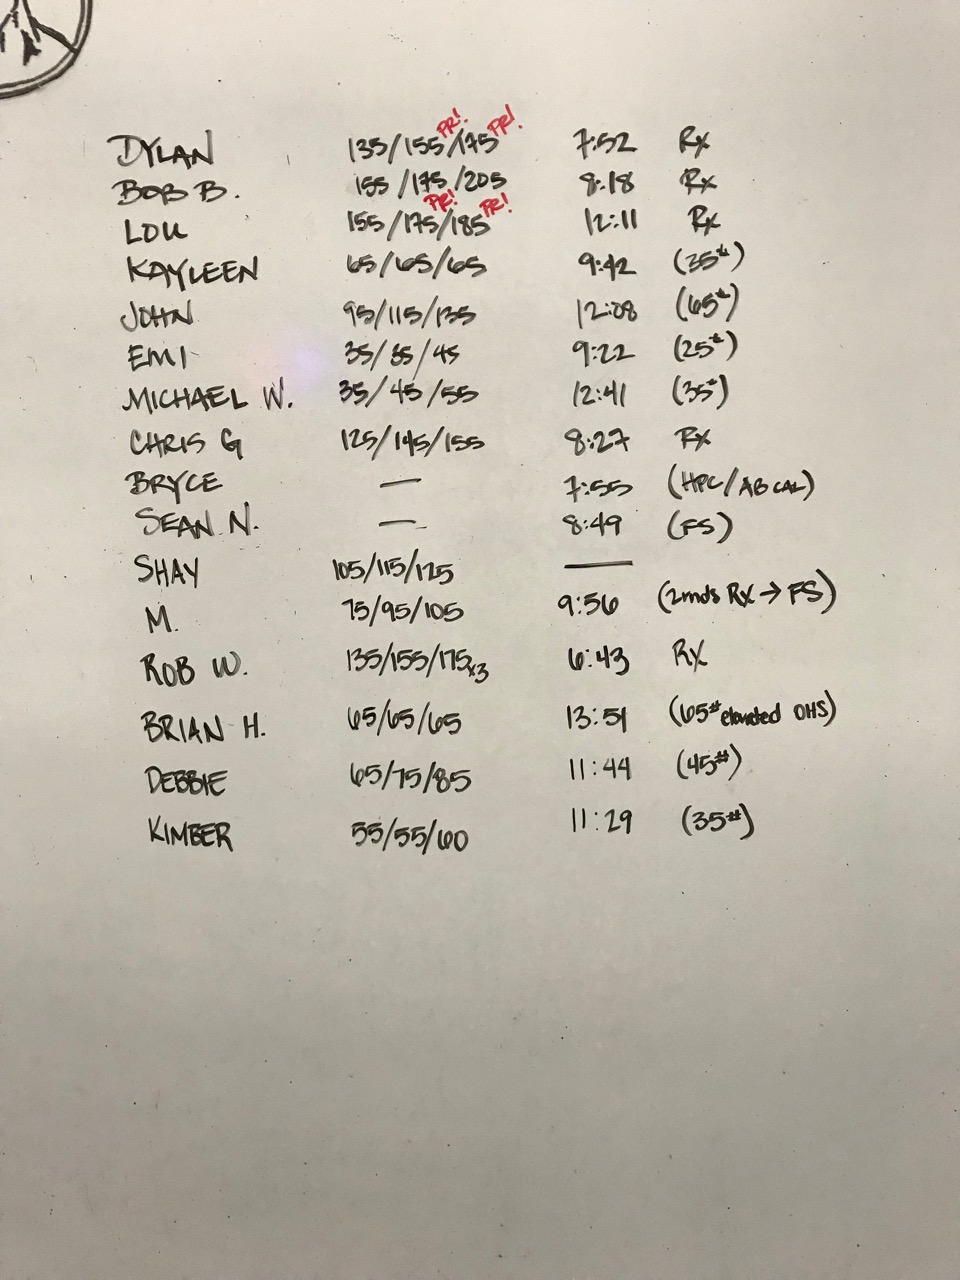 DYLAN 135/155 PR!/175 PR! 7:52 Rx
BOB B. 155/175/205 8:18 Rx
LOU 155/175 PR!/185 PR! 12:11 Rx
KAYLEEN 65/65/65 9:42 (35#)
JOHN 95/115/135 12:08 (65#)
EMI 35/35/45 9:22 (25#)
MICHAEL W. 35/45/55 12:41 (35#)
CHRIS G 125/145/155 8:27 Rx
BRYCE — 7:55 (HPC/AB CAL)
SEAN N. — 8:49 (FS)
SHAY 105/115/125 —
M. 75/95/105 9:56 (2rnds Rx → FS)
ROB W. 135/155/175x3 6:43 Rx
BRIAN H. 65/65/65 13:51 (65# elevated OHS)
DEBBIE 65/75/85 11:44 (45#)
KIMBER 55/55/60 11:29 (35#)